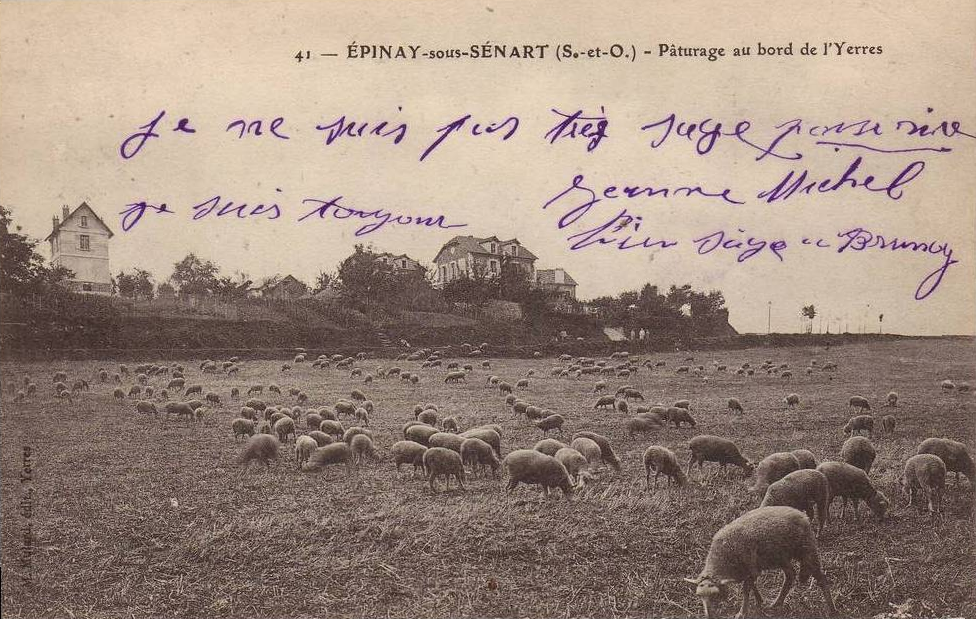 41 — ÉPINAY-sous-SÉNART (S.-et-O.) - Pâturage au bord de l'Yerres
Je ne suis pas très sage
Jeanne Michel
je suis toujour
bien sage a Brunoy
édit., Yerres